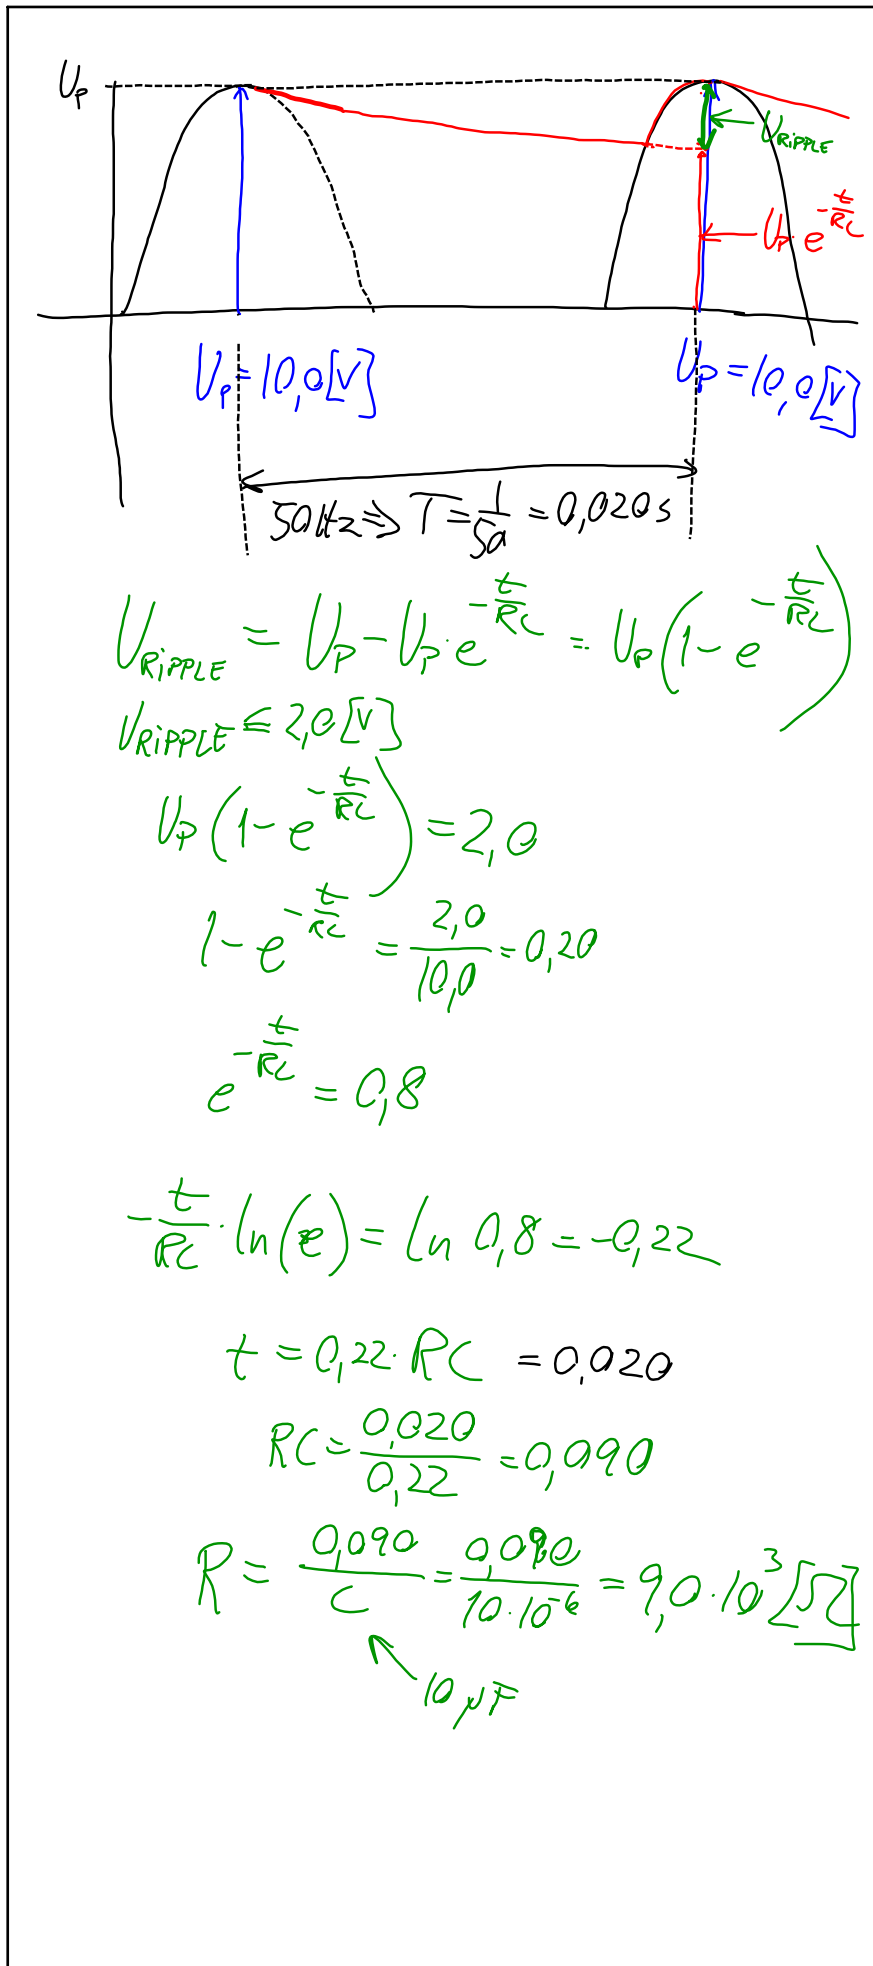 U_P
U_RIPPLE
U_P · e^(-t/RC)
U_P = 10,0 [V]
U_P = 10,0 [V]
50 Hz ⇒ T = 1/50 = 0,020 s
U_RIPPLE = U_P - U_P · e^(-t/RC) = U_P (1 - e^(-t/RC))
U_RIPPLE ≤ 2,0 [V]
U_P (1 - e^(-t/RC)) = 2,0
1 - e^(-t/RC) = 2,0/10,0 = 0,20
e^(-t/RC) = 0,8
-t/RC · ln(e) = ln 0,8 = -0,22
t = 0,22 · RC = 0,020
RC = 0,020/0,22 = 0,090
R = 0,090/C = 0,090/10·10^-6 = 9,0 · 10^3 [Ω]
10 µF